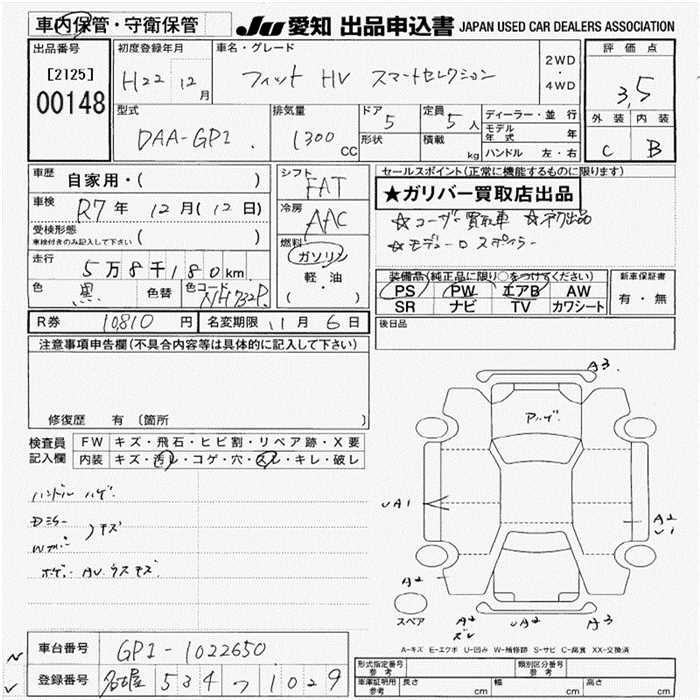 車内保管・守衛保管
JU 愛知 出品申込書 JAPAN USED CAR DEALERS ASSOCIATION
出品番号
[2125]
00148
初度登録年月
H22 12月
車名・グレード
フィット HV スマートセレクション
2WD
・
4WD
評価点
3,5
外装 内装
C B
型式
DAA-GP1
排気量
1300 CC
ドア
5
形状
定員
5人
積載
kg
ディーラー・並行
モデル年式 年
ハンドル 左・右
車歴
自家用・( )
車検
R7年 12月(12日)
受検形態
車検付きのみ記入して下さい ( )
走行
5万8千180km
色
黒
色替
色コード
NH732P
シフト
FAT
冷房
AAC
燃料
ガソリン
軽・油
( )
セールスポイント(正常に機能するものに限ります)
★ガリバー買取店出品
☆ユーザー買取車 ☆初出品
☆モデューロ スポイラー
装備品(純正品に限り○をつけてください)
PS PW エアB AW
SR ナビ TV カワシート
新車保証書
有・無
後日品
R券 10810円 名変期限 11月6日
注意事項申告欄(不具合内容等は具体的に記入して下さい)
修復歴 有〔箇所 〕
検査員
記入欄
FW キズ・飛石・ヒビ割・リペア跡・X要
内装 キズ・汚レ・コゲ・穴・スレ・キレ・破レ
ハンドル ハゲ
Dミラー
キズ
ボデー AU.ウスキズ
A3
UA1
A2
U1
A2
A2
UA2
A3
スペア
A-キズ E-エクボ U-凹み W-補修跡 S-サビ C-腐食 XX-交換済
車台番号 GP1-1022650
登録番号 名古屋 534 つ 1029
形式指定番号
参考
類別区分番号
参考
車庫証明用
参考
長さ cm
幅 cm
高さ cm